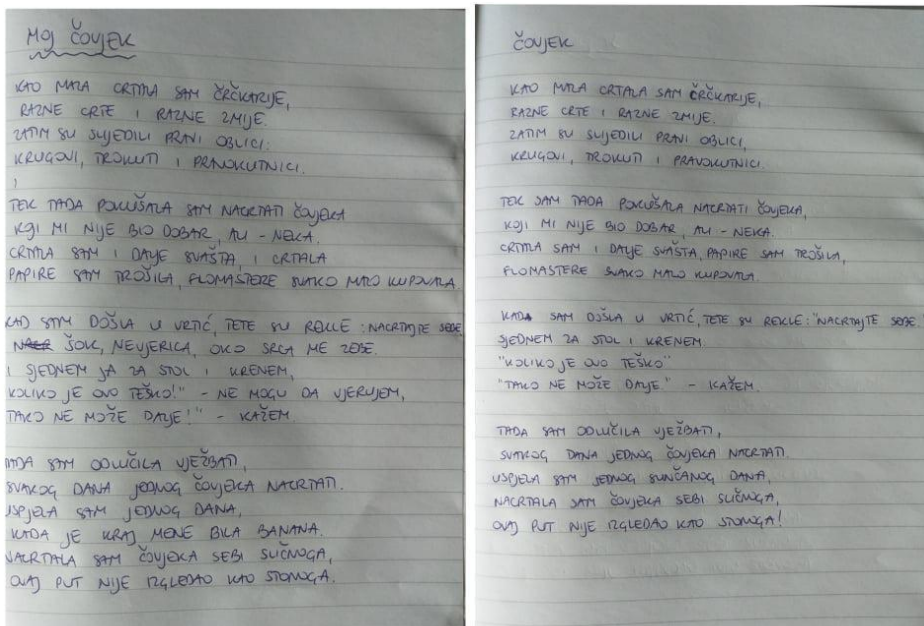 MOJ ČOVJEK
KAO MALA CRTALA SAM ČRČKARIJE,
RAZNE CRTE I RAZNE ZMIJE.
ZATIM SU SLIJEDILI PRAVI OBLICI:
KRUGOVI, TROKUTI I PRAVOKUTNICI.
TEK TADA POKUŠALA SAM NACRTATI ČOVJEKA
KOJI MI NIJE BIO DOBAR, ALI - NEKA.
CRTALA SAM I DALJE SVAŠTA, I CRTALA
PAPIRE SAM TROŠILA, FLOMASTERE SVAKO MALO KUPOVALA.
KAD SAM DOŠLA U VRTIĆ, TETE SU REKLE: NACRTAJTE SEBE
ŠOK, NEVJERICA, OKO SRCA ME ZEBE.
I SJEDNEM JA ZA STOL I KRENEM,
KOLIKO JE OVO TEŠKO!" - NE MOGU DA VJERUJEM,
TAKO NE MOŽE DALJE!" - KAŽEM.
TADA SAM ODLUČILA VJEŽBATI,
SVAKOG DANA JEDNOG ČOVJEKA NACRTATI.
USPJELA SAM JEDNOG DANA,
KADA JE KRAJ MENE BILA BANANA.
NACRTALA SAM ČOVJEKA SEBI SLIČNOGA,
OVAJ PUT NIJE IZGLEDAO KAO STONOGA.
ČOVJEK
KAO MALA CRTALA SAM ČRČKARIJE,
RAZNE CRTE I RAZNE ZMIJE.
ZATIM SU SLIJEDILI PRAVI OBLICI,
KRUGOVI, TROKUTI I PRAVOKUTNICI.
TEK SAM TADA POKUŠALA NACRTATI ČOVJEKA,
KOJI MI NIJE BIO DOBAR, ALI - NEKA.
CRTALA SAM I DALJE SVAŠTA, PAPIRE SAM TROŠILA,
FLOMASTERE SVAKO MALO KUPOVALA.
KADA SAM DOŠLA U VRTIĆ, TETE SU REKLE: "NACRTAJTE SEBE"
SJEDNEM ZA STOL I KRENEM.
"KOLIKO JE OVO TEŠKO"
"TAKO NE MOŽE DALJE." - KAŽEM.
TADA SAM ODLUČILA VJEŽBATI,
SVAKOG DANA JEDNOG ČOVJEKA NACRTATI.
USPJELA SAM JEDNOG SUNČANOG DANA,
NACRTALA SAM ČOVJEKA SEBI SLIČNOGA,
OVAJ PUT NIJE IZGLEDAO KAO STONOGA!